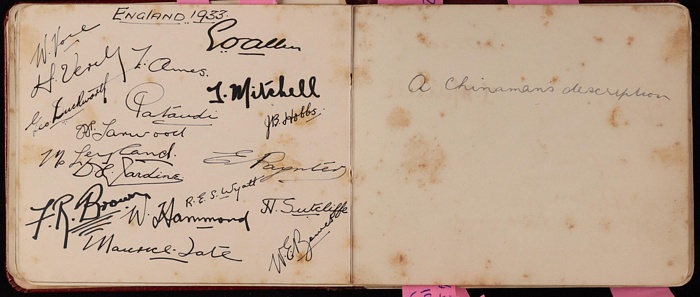 ENGLAND 1933.
W. Voce
H. Verity
L. Ames.
G O Allen
Geo Duckworth
Pataudi
T. Mitchell
H. Larwood
J B Hobbs.
M Leyland.
D. R. Jardine
E Paynter
F. R. Brown
R.E.S. Wyatt
W. Hammond
H. Sutcliffe
Maurice Tate
W E Bowes
A Chinaman's description